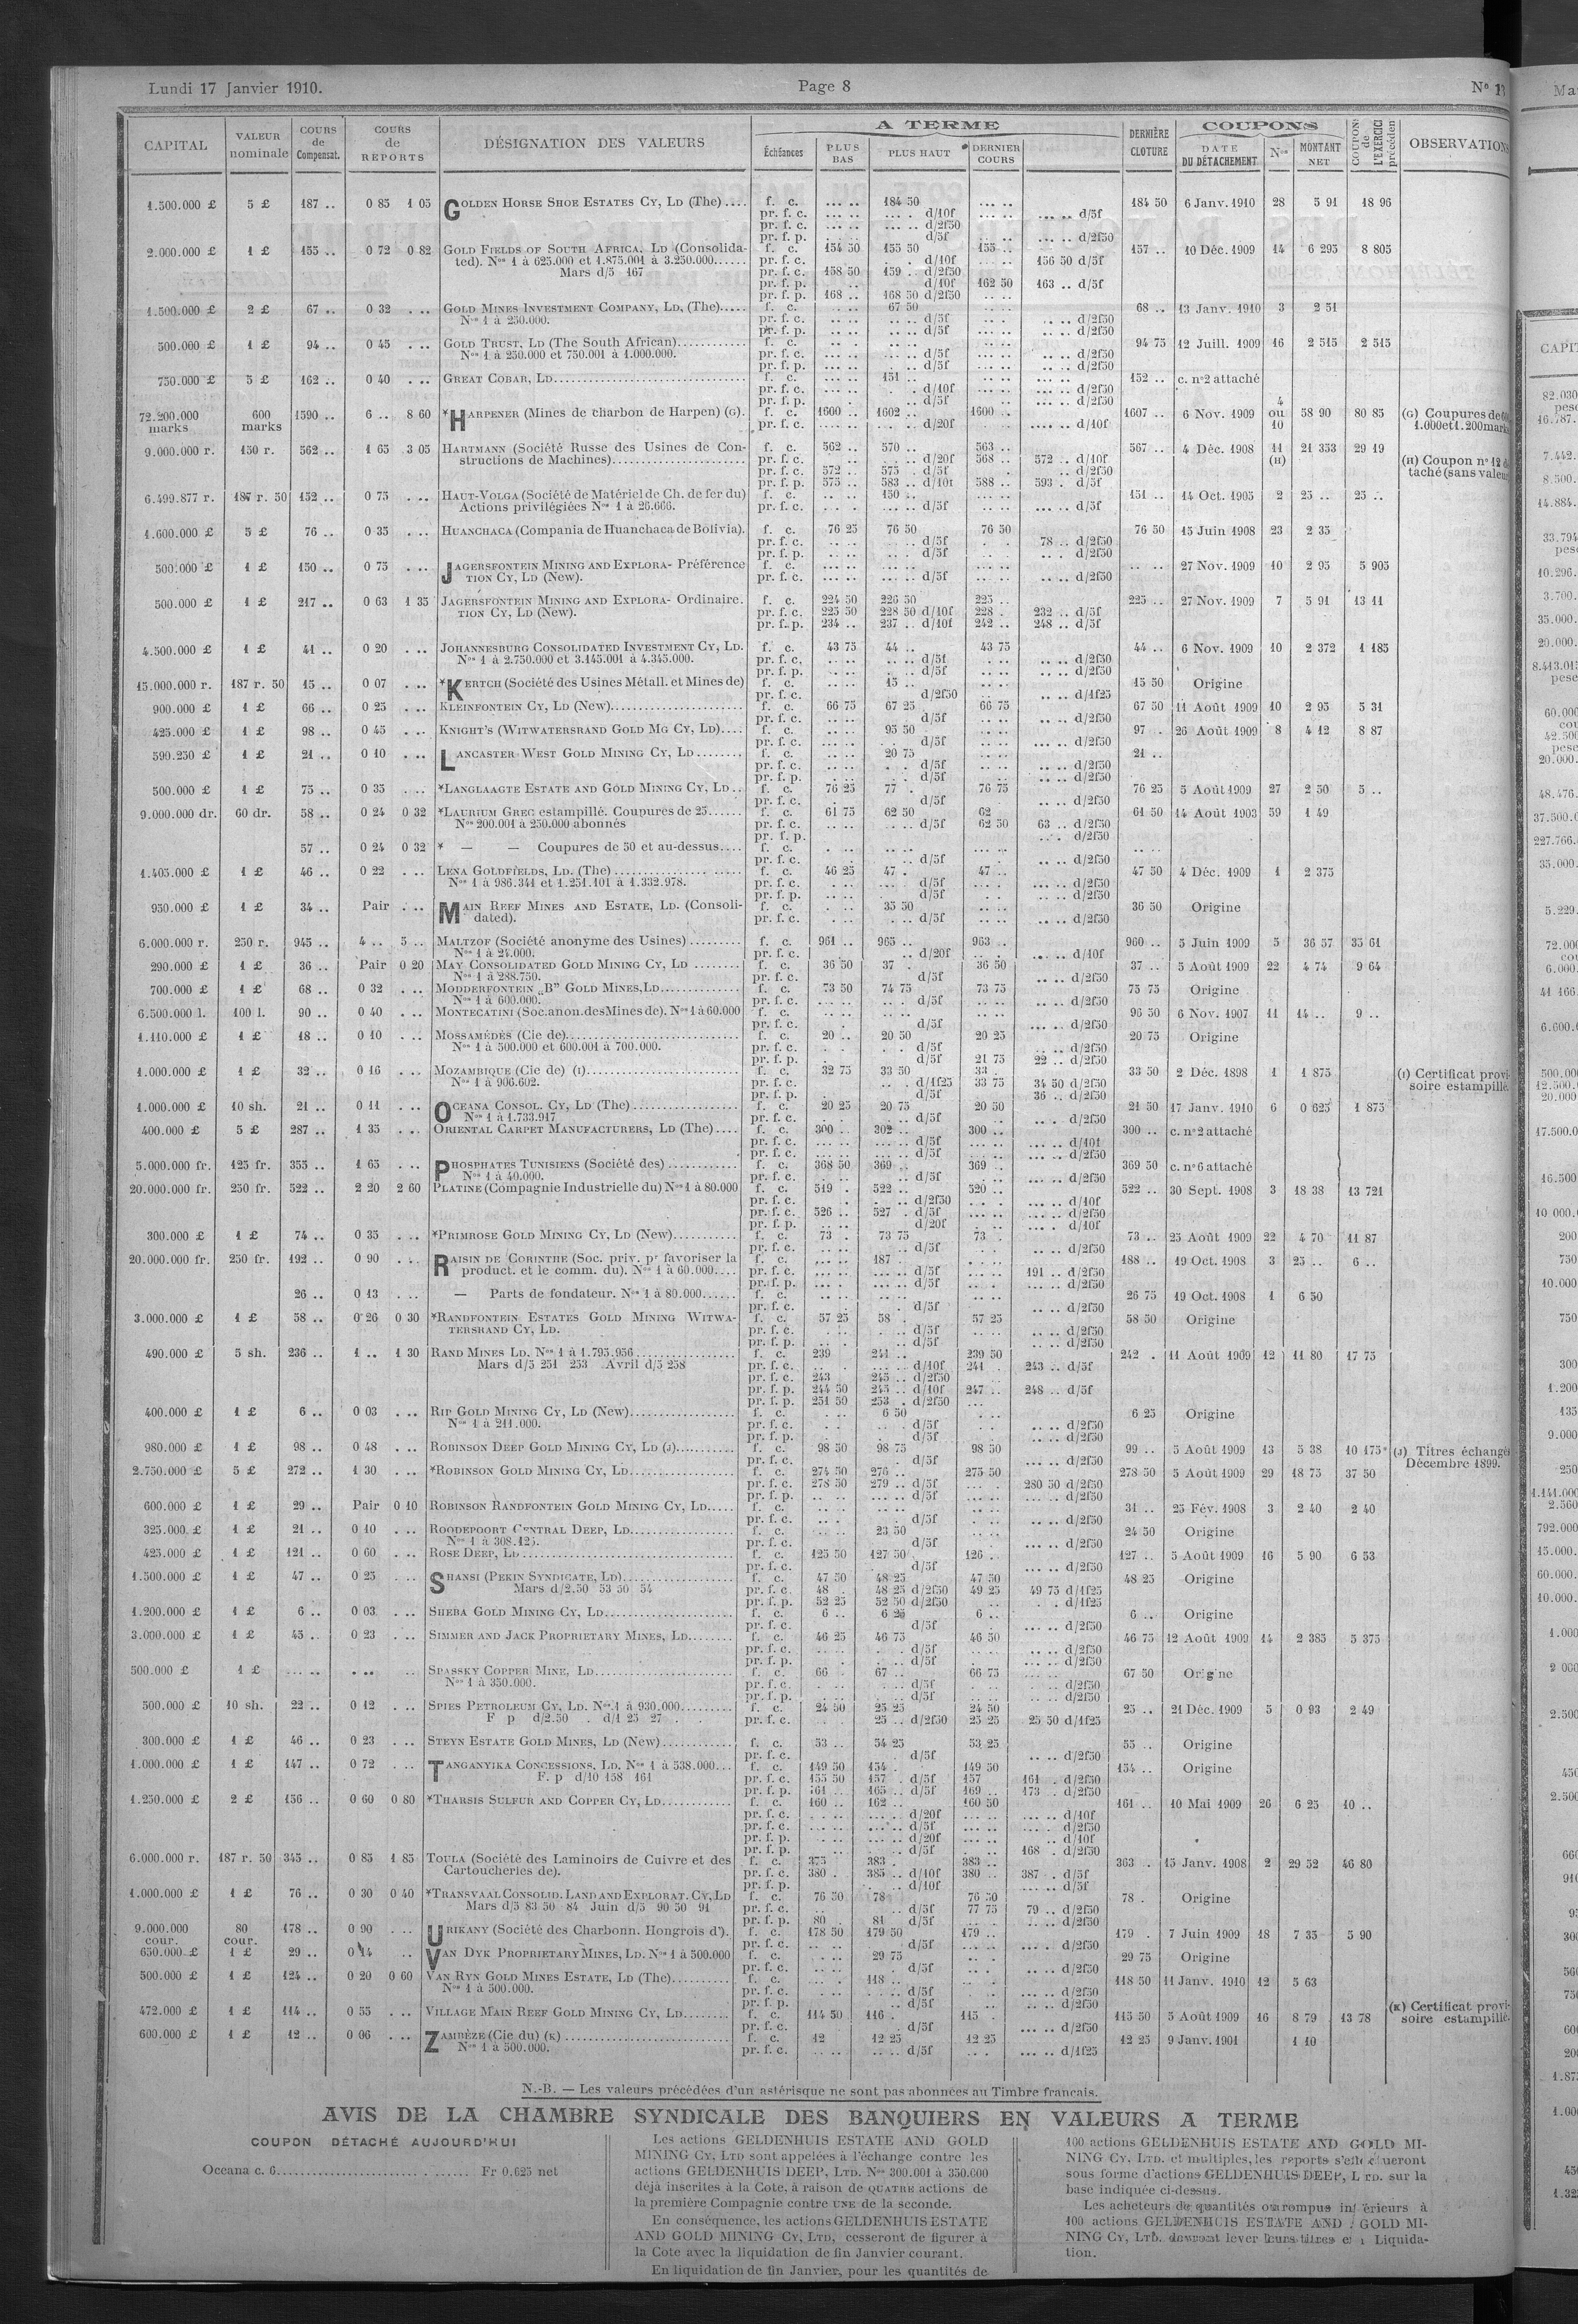 Lundi 17 Janvier 1910. Page 8 N° 13
CAPITAL VALEUR nominale COURS de Compensat. COURS de REPORTS DÉSIGNATION DES VALEURS A TERME Échéances PLUS BAS PLUS HAUT DERNIER COURS DERNIÈRE CLOTURE COUPONS DATE DU DÉTACHEMENT Nos MONTANT NET COUPONS de L'EXERCICE précédent OBSERVATIONS
1.500.000 £ 5 £ 187 .. 0 85 1 05 GOLDEN HORSE SHOE ESTATES CY, LD (The).... f. c. ... .. 184 50 ... .. 184 50 6 Janv. 1910 28 5 91 18 96
pr. f. c. ... .. ... . d/10f ... .. d/5f
pr. f. c. ... .. ... .. d/2f50
pr. f. p. d/5f ... .. d/2f50
2.000.000 £ 1 £ 155 .. 0 72 0 82 GOLD FIELDS OF SOUTH AFRICA, LD (Consolida- f. c. 154 50 155 50 155 .. 157 .. 10 Déc. 1909 14 6 295 8 805
ted). Nos 1 à 625.000 et 1.875.001 à 3.250.000...... pr. f. c. d/10f 156 50 d/5f
Mars d/5 167 pr. f. c. 158 50 159 .. d/2f50
pr. f. p. d/10f 162 50 163 .. d/5f
pr. f. p. 168 .. 168 50 d/2f50
1.500.000 £ 2 £ 67 .. 0 32 . .. GOLD MINES INVESTMENT COMPANY, LD, (The)..... f. c. 67 50 68 .. 13 Janv. 1910 3 2 51
Nos 1 à 250.000. pr. f. c. d/5f d/2f50
pr. f. p. d/5f d/2f50
500.000 £ 1 £ 94 .. 0 45 . .. GOLD TRUST, LD (The South African)............ f. c. 94 75 12 Juill. 1909 16 2 515 2 515
Nos 1 à 250.000 et 750.001 à 1.000.000. pr. f. c. d/5f d/2f50
pr. f. p. d/5f d/2f50
750.000 £ 5 £ 162 .. 0 40 . .. GREAT COBAR, LD............ f. c. 151 .. 152 .. c. n°2 attaché
pr. f. c. d/10f d/2f50
pr. f. p. d/5f d/2f50
72.200.000 marks 600 marks 1590 .. 6 .. 8 60 *HARPENER (Mines de charbon de Harpen) (G). f. c. 1600 .. 1602 .. 1600 .. 1607 .. 6 Nov. 1909 4 ou 10 58 90 80 85 (G) Coupures de
pr. f. c. d/20f d/10f 1.000 et 1.200 marks
9.000.000 r. 150 r. 562 .. 1 65 3 05 HARTMANN (Société Russe des Usines de Con- f. c. 562 .. 570 .. 563 .. 567 .. 4 Déc. 1908 11 (H) 21 353 29 19
structions de Machines)............ pr. f. c. d/20f 568 .. 572 .. d/10f (H) Coupon n° 12
pr. f. c. 572 .. 575 .. d/5f d/2f50 taché (sans valeur
pr. f. p. 575 .. 583 .. d/10f 588 .. 593 . d/5f
6.499.877 r. 187 r. 50 152 .. 0 75 . .. HAUT-VOLGA (Société de Matériel de Ch. de fer du) f. c. 150 .. 151 .. 14 Oct. 1905 2 25 .. 25 ..
Actions privilégiées Nos 1 à 26.666. pr. f. c. d/5f d/5f
1.600.000 £ 5 £ 76 .. 0 35 . .. HUANCHACA (Compania de Huanchaca de Bolivia). f. c. 76 25 76 50 76 50 76 50 15 Juin 1908 23 2 35
pr. f. c. d/5f 78 .. d/2f50
pr. f. p. d/5f d/2f50
500.000 £ 1 £ 150 .. 0 75 . .. JAGERSFONTEIN MINING AND EXPLORA- Préférence f. c. 27 Nov. 1909 10 2 95 5 905
TION CY, LD (New). pr. f. c. d/5f d/2f50
500.000 £ 1 £ 217 .. 0 63 1 35 JAGERSFONTEIN MINING AND EXPLORA- Ordinaire. f. c. 224 50 226 50 225 .. 225 .. 27 Nov. 1909 7 5 91 13 11
TION CY, LD (New). pr. f. c. 225 50 228 50 d/10f 228 . 232 .. d/5f
pr. f. p. 234 .. 237 .. d/10f 242 .. 248 .. d/5f
4.500.000 £ 1 £ 41 .. 0 20 . .. JOHANNESBURG CONSOLIDATED INVESTMENT CY, LD. f. c. 43 75 44 .. 43 75 44 .. 6 Nov. 1909 10 2 372 1 185
Nos 1 à 2.750.000 et 3.145.001 à 4.345.000. pr. f. c. d/5f d/2f50
pr. f. p. d/5f d/2f50
15.000.000 r. 187 r. 50 15 .. 0 07 . .. *KERTCH (Société des Usines Métall. et Mines de) f. c. 15 .. 15 50 Origine
pr. f. c. d/2f50 d/1f25
900.000 £ 1 £ 66 .. 0 25 . .. KLEINFONTEIN CY, LD (New)............ f. c. 66 75 67 25 66 75 67 50 11 Août 1909 10 2 95 5 31
pr. f. c. d/5f d/2f50
425.000 £ 1 £ 98 .. 0 45 . .. KNIGHT'S (WITWATERSRAND GOLD MG CY, LD).... f. c. 95 50 97 .. 26 Août 1909 8 4 12 8 87
pr. f. c. d/5f d/2f50
590.250 £ 1 £ 21 .. 0 10 . .. LANCASTER WEST GOLD MINING CY, LD ........ f. c. 20 75 21 ..
pr. f. c. d/5f d/2f50
pr. f. p. d/5f d/2f50
500.000 £ 1 £ 75 .. 0 35 . .. *LANGLAAGTE ESTATE AND GOLD MINING CY, LD .. f. c. 76 25 77 . 76 75 76 25 5 Août 1909 27 2 50 5 ..
pr. f. c. d/5f d/2f50
9.000.000 dr. 60 dr. 58 .. 0 24 0 32 *LAURIUM GREC estampillé. Coupures de 25...... f. c. 61 75 62 50 62 61 50 14 Août 1903 59 1 49
Nos 200.001 à 250.000 abonnés pr. f. c. d/5f 62 50 63 .. d/2f50
pr. f. p. d/2f50
57 .. 0 24 0 32 * — — Coupures de 50 et au-dessus.... f. c.
pr. f. c. d/5f d/2f50
1.405.000 £ 1 £ 46 .. 0 22 . .. LENA GOLDFIELDS, LD. (The) ............ f. c. 46 25 47 . 47 .. 47 50 4 Déc. 1909 1 2 375
Nos 1 à 986.341 et 1.251.101 à 1.332.978. pr. f. c. d/5f d/2f50
pr. f. p. d/5f d/2f50
950.000 £ 1 £ 34 .. Pair . .. MAIN REEF MINES AND ESTATE, LD. (Consoli- f. c. 35 50 36 50 Origine
dated). pr. f. c. d/5f d/2f50
6.000.000 r. 250 r. 945 .. 4 .. 5 .. MALTZOF (Société anonyme des Usines) ......... f. c. 961 .. 965 .. 963 .. 960 .. 5 Juin 1909 5 36 57 35 61
Nos 1 à 24.000. pr. f. c. d/20f d/10f
290.000 £ 1 £ 36 .. Pair 0 20 MAY CONSOLIDATED GOLD MINING CY, LD ........ f. c. 36 50 37 . 36 50 37 .. 5 Août 1909 22 4 74 9 64
Nos 1 à 288.750. pr. f. c. d/5f d/2f50
700.000 £ 1 £ 68 .. 0 32 . .. MODDERFONTEIN „B” GOLD MINES, LD............ f. c. 73 50 74 75 73 75 75 75 Origine
Nos 1 à 600.000. pr. f. c. d/5f d/2f50
6.500.000 l. 100 l. 90 .. 0 40 . .. MONTECATINI (Soc. anon. des Mines de). Nos 1 à 60.000 f. c. 96 50 6 Nov. 1907 11 14 .. 9 ..
pr. f. c. d/5f d/2f50
1.110.000 £ 1 £ 18 .. 0 10 . .. MOSSAMÉDÈS (Cie de)............ f. c. 20 .. 20 50 20 25 20 75 Origine
Nos 1 à 500.000 et 600.001 à 700.000. pr. f. c. d/5f d/2f50
pr. f. p. d/5f 21 75 22 .. d/2f50
1.000.000 £ 1 £ 32 .. 0 16 . .. MOZAMBIQUE (Cie de) (I)............ f. c. 32 75 33 50 33 . 33 50 2 Déc. 1898 1 1 875 (I) Certificat provi-
Nos 1 à 906.602. pr. f. c. d/1f25 33 75 34 50 d/2f50 soire estampillé.
pr. f. p. d/5f 36 .. d/2f50
1.000.000 £ 10 sh. 21 .. 0 11 . .. OCEANA CONSOL. CY, LD (The) ............ f. c. 20 25 20 75 20 50 21 50 17 Janv. 1910 6 0 625 1 875
Nos 1 à 1.733.917 pr. f. c. d/5f d/2f50
400.000 £ 5 £ 287 .. 1 35 . .. ORIENTAL CARPET MANUFACTURERS, LD (The).... f. c. 300 .. 302 .. 300 .. 300 .. c. n°2 attaché
pr. f. c. d/5f d/10f
pr. f. c. d/5f d/2f50
5.000.000 fr. 125 fr. 355 .. 1 65 . .. PHOSPHATES TUNISIENS (Société des) ............ f. c. 368 50 369 .. 369 .. 369 50 c. n° 6 attaché
Nos 1 à 40.000. pr. f. c. d/5f d/2f50
20.000.000 fr. 250 fr. 522 .. 2 20 2 60 PLATINE (Compagnie Industrielle du) Nos 1 à 80.000 f. c. 519 . 522 .. 520 .. 522 .. 30 Sept. 1908 3 18 38 13 721
pr. f. c. d/2f50 d/10f
pr. f. c. 526 .. 527 . d/5f d/2f50
pr. f. p. d/20f d/10f
300.000 £ 1 £ 74 .. 0 35 . .. *PRIMROSE GOLD MINING CY, LD (New)........... f. c. 73 . 73 75 73 . 73 .. 25 Août 1909 22 4 70 11 87
pr. f. c. d/5f d/2f50
20.000.000 fr. 250 fr. 192 .. 0 90 . .. RAISIN DE CORINTHE (Soc. priv. pr favoriser la f. c. 187 . 188 .. 19 Oct. 1908 3 25 .. 6 ..
product. et le comm. du). Nos 1 à 60.000.... pr. f. c. d/5f 191 .. d/2f50
pr. f. p. d/5f d/2f50
26 .. 0 13 . .. — Parts de fondateur. Nos 1 à 80.000...... f. c. 26 75 19 Oct. 1908 1 6 50
pr. f. c. d/5f d/2f50
3.000.000 £ 1 £ 58 .. 0 26 0 30 *RANDFONTEIN ESTATES GOLD MINING WITWA- f. c. 57 25 58 . 57 25 58 50 Origine
TERSRAND CY, LD. pr. f. c. d/5f d/2f50
pr. f. p. d/5f d/2f50
490.000 £ 5 sh. 236 .. 1 .. 1 30 RAND MINES LD. Nos 1 à 1.795.956............ f. c. 239 241 .. 239 50 242 . 11 Août 1909 12 11 80 17 75
Mars d/5 251 253 Avril d/5 258 pr. f. c. d/10f 241 . 243 .. d/5f
pr. f. c. 243 245 .. d/2f50
pr. f. p. 244 50 245 .. d/10f 247 .. 248 .. d/5f
pr. f. p. 251 50 253 . d/2f50
400.000 £ 1 £ 6 .. 0 03 . .. RIP GOLD MINING CY, LD (New)............ f. c. 6 50 6 25 Origine
Nos 1 à 211.000. pr. f. c. d/5f d/2f50
pr. f. p. d/5f d/2f50
980.000 £ 1 £ 98 .. 0 48 . .. ROBINSON DEEP GOLD MINING CY, LD (J)......... f. c. 98 50 98 75 98 50 99 .. 5 Août 1909 13 5 38 10 175 (J) Titres échangés
pr. f. c. d/5f d/2f50 Décembre 1899.
2.750.000 £ 5 £ 272 .. 1 30 . .. *ROBINSON GOLD MINING CY, LD............ f. c. 274 50 276 .. 275 50 278 50 5 Août 1909 29 18 75 37 50
pr. f. c. 278 50 279 .. d/5f 280 50 d/2f50
pr. f. p. d/5f d/2f50
600.000 £ 1 £ 29 .. Pair 0 10 ROBINSON RANDFONTEIN GOLD MINING CY, LD..... f. c. 31 .. 25 Fév. 1908 3 2 40 2 40
pr. f. c. d/5f d/2f50
325.000 £ 1 £ 21 .. 0 10 . .. ROODEPOORT CENTRAL DEEP, LD............ f. c. 23 50 24 50 Origine
Nos 1 à 308.125. pr. f. c. d/5f d/2f50
425.000 £ 1 £ 121 .. 0 60 . .. ROSE DEEP, LD ............ f. c. 125 50 127 50 126 . 127 .. 5 Août 1909 16 5 90 6 53
pr. f. c. d/5f d/2f50
1.500.000 £ 1 £ 47 .. 0 25 . .. SHANSI (PEKIN SYNDICATE, LD)............ f. c. 47 50 48 25 47 50 48 25 Origine
Mars d/2.50 53 50 54 pr. f. c. 48 . 48 25 d/2f50 49 25 49 75 d/1f25
pr. f. p. 52 25 52 50 d/2f50 d/1f25
1.200.000 £ 1 £ 6 .. 0 03 . .. SHEBA GOLD MINING CY, LD............ f. c. 6 .. 6 25 6 .. 6 .. Origine
pr. f. c. d/5f d/2f50
3.000.000 £ 1 £ 45 .. 0 23 . .. SIMMER AND JACK PROPRIETARY MINES, LD........ f. c. 46 25 46 75 46 50 46 75 12 Août 1909 14 2 385 5 375
pr. f. c. d/5f d/2f50
pr. f. p. d/5f d/2f50
500.000 £ 1 £ SPASSKY COPPER MINE, LD............ f. c. 66 . 67 .. 66 75 67 50 Origine
Nos 1 à 350.000. pr. f. c. d/5f d/2f50
pr. f. p. d/5f d/2f50
500.000 £ 10 sh. 22 .. 0 12 . .. SPIES PETROLEUM CY, LD. Nos 1 à 930.000......... f. c. 24 50 25 25 24 50 25 .. 21 Déc. 1909 5 0 93 2 49
F p d/2.50 . d/1 25 27 . pr. f. c. 25 .. d/2f50 25 25 25 50 d/1f25
300.000 £ 1 £ 46 .. 0 23 . .. STEYN ESTATE GOLD MINES, LD (New)............ f. c. 53 .. 54 25 53 25 55 .. Origine
pr. f. c. d/5f d/2f50
1.000.000 £ 1 £ 147 .. 0 72 . .. TANGANYIKA CONCESSIONS, LD. Nos 1 à 538.000... f. c. 149 50 154 . 149 50 154 .. Origine
F. p d/10 158 161 pr. f. c. 155 50 157 . d/5f 157 161 . d/2f50
pr. f. p. 161 .. 165 .. d/5f 169 .. 173 .. d/2f50
1.250.000 £ 2 £ 156 .. 0 60 0 80 *THARSIS SULFUR AND COPPER CY, LD............ f. c. 160 .. 162 .. 160 50 161 .. 10 Mai 1909 26 6 25 10 ..
pr. f. c. d/20f d/10f
pr. f. c. d/5f d/2f50
pr. f. p. d/20f d/10f
pr. f. p. d/5f 168 . d/2f50
6.000.000 r. 187 r. 50 345 .. 0 85 1 85 TOULA (Société des Laminoirs de Cuivre et des f. c. 375 383 . 383 .. 363 . 15 Janv. 1908 2 29 52 46 80
Cartoucheries de). pr. f. c. 380 . 385 .. d/10f 380 .. 387 . d/5f
pr. f. p. d/10f d/5f
1.000.000 £ 1 £ 76 .. 0 30 0 40 *TRANSVAAL CONSOLID. LAND AND EXPLORAT. CY, LD f. c. 76 50 78 76 50 78 . Origine
Mars d/5 83 50 84 Juin d/5 90 50 91 pr. f. c. d/5f 77 75 79 .. d/2f50
pr. f. p. 80 . 81 d/5f d/2f50
9.000.000 cour. 80 cour. 178 .. 0 90 . .. URIKANY (Société des Charbonn. Hongrois d'). f. c. 178 50 179 50 179 .. 179 . 7 Juin 1909 18 7 35 5 90
pr. f. c. d/5f d/2f50
650.000 £ 1 £ 29 .. 0 14 .. VAN DYK PROPRIETARY MINES, LD. Nos 1 à 500.000 f. c. 29 75 29 75 Origine
pr. f. c. d/5f d/2f50
500.000 £ 1 £ 124 .. 0 20 0 60 VAN RYN GOLD MINES ESTATE, LD (The).......... f. c. 118 .. 118 50 11 Janv. 1910 12 5 63
Nos 1 à 500.000. pr. f. c. d/5f d/2f50
pr. f. p. d/5f d/2f50
472.000 £ 1 £ 114 .. 0 55 . .. VILLAGE MAIN REEF GOLD MINING CY, LD........ f. c. 114 50 116 . 115 . 115 50 5 Août 1909 16 8 79 13 78 (K) Certificat provi-
pr. f. c. d/5f d/2f50 soire estampillé.
600.000 £ 1 £ 12 .. 0 06 . .. ZAMBÈZE (Cie du) (K) ............ f. c. 12 12 25 12 25 12 25 9 Janv. 1901 1 10
Nos 1 à 500.000. pr. f. c. d/5f d/1f25
N.-B. — Les valeurs précédées d'un astérisque ne sont pas abonnées au Timbre français.
AVIS DE LA CHAMBRE SYNDICALE DES BANQUIERS EN VALEURS A TERME
COUPON DÉTACHÉ AUJOURD'HUI
Oceana c. 6............ Fr 0.625 net
Les actions GELDENHUIS ESTATE AND GOLD
MINING CY, LTD sont appelées à l'échange contre les
actions GELDENHUIS DEEP, LTD. Nos 300.001 à 350.000
déjà inscrites à la Cote, à raison de QUATRE actions de
la première Compagnie contre UNE de la seconde.
En conséquence, les actions GELDENHUIS ESTATE
AND GOLD MINING CY, LTD, cesseront de figurer à
la Cote avec la liquidation de fin Janvier courant.
En liquidation de fin Janvier, pour les quantités de
100 actions GELDENHUIS ESTATE AND GOLD MI-
NING CY. LTD. et multiples, les reports s'effectueront
sous forme d'actions GELDENHUIS DEEP, LTD. sur la
base indiquée ci-dessus.
Les acheteurs de quantités ou rompus inférieurs à
100 actions GELDENHUIS ESTATE AND GOLD MI-
NING CY, LTD. devront lever leurs titres en Liquida-
tion.